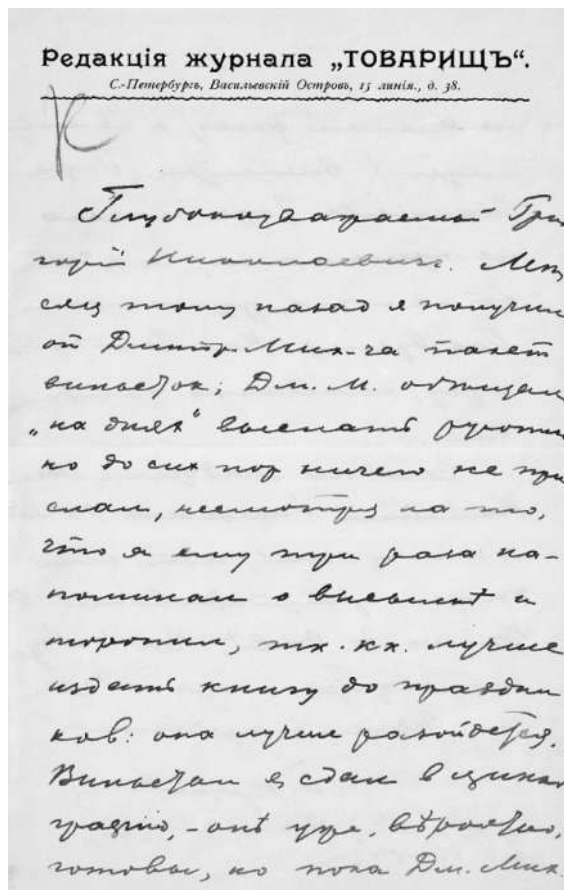 Редакція журнала „ТОВАРИЩЪ“.
С.-Петербургъ, Васильевскій Островъ, 15 линія., д. 38.
Глубокоуважаемый Гри
горій Николаевич. Меся
сяц тому назад я получил
от Дмитр. Мих-ча пакет
виньеток; Дм. М. обещал
„на днях“ выслать рукопи
но до сих пор ничего не при
слал, несмотря на то,
что я ему три раза на-
поминал о высылкѣ и
торопил, тк. кк. лучше
издать книгу до праздни
ков: она лучше разойдется.
Виньетки я сдал в цинко
графію, - онѣ уже, вѣроятно,
готовы, но пока Дм. Мих.